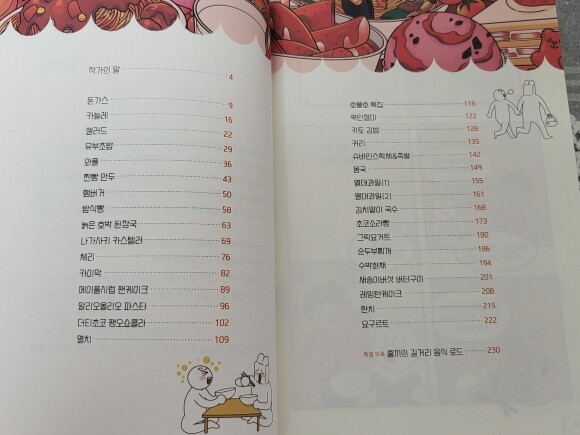 작가의 말 4
돈가스 9
카눌레 16
샐러드 22
유부초밥 29
와플 36
찐빵 만두 43
햄버거 50
밤식빵 58
늙은 호박 된장국 63
나가사키 카스텔라 69
체리 76
카이막 82
메이플시럽 팬케이크 89
알리오올리오 파스타 96
더티초코 팽오쇼콜라 102
멸치 109
호불호 특집 116
쑥인절미 122
키토 김밥 128
커리 135
슈바인스학세&족발 142
몸국 149
열대과일(1) 155
열대과일(2) 161
김치말이 국수 168
초코소라빵 173
그릭요거트 180
순두부찌개 186
수박화채 194
새송이버섯 버터구이 201
레밍턴케이크 208
한치 215
요구르트 222
특별 부록 홀끼의 길거리 음식 로드 230